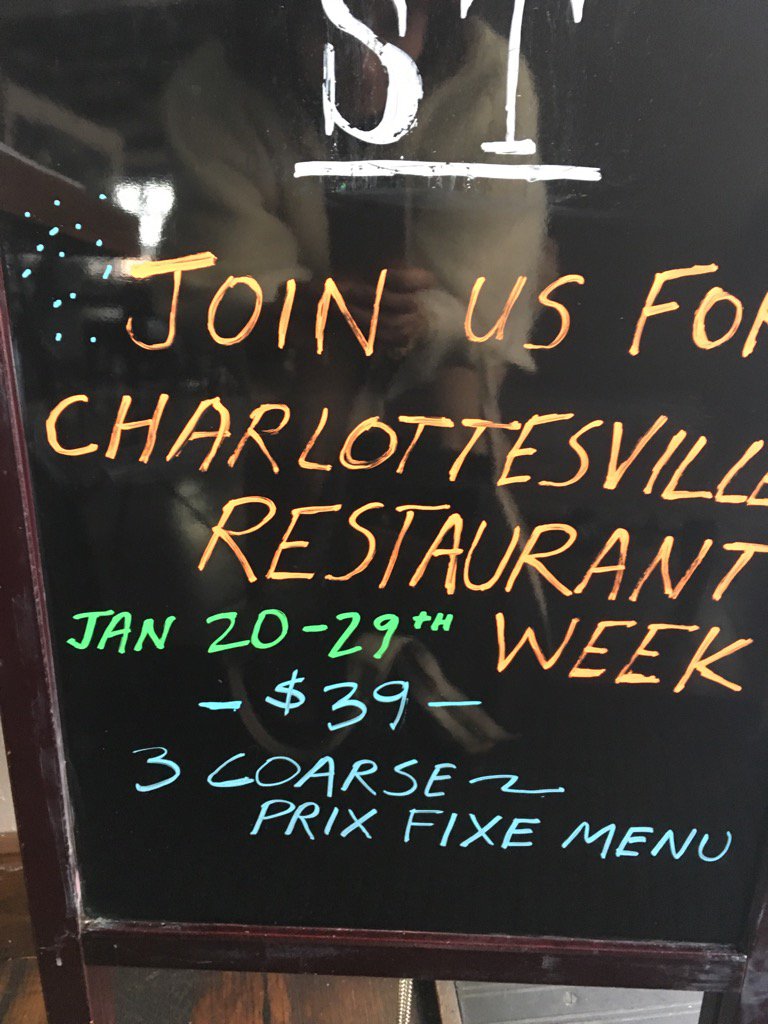 ST
JOIN US FOR
CHARLOTTESVILLE
RESTAURANT
JAN 20-29TH WEEK
- $39 -
3 COARSE ~
PRIX FIXE MENU